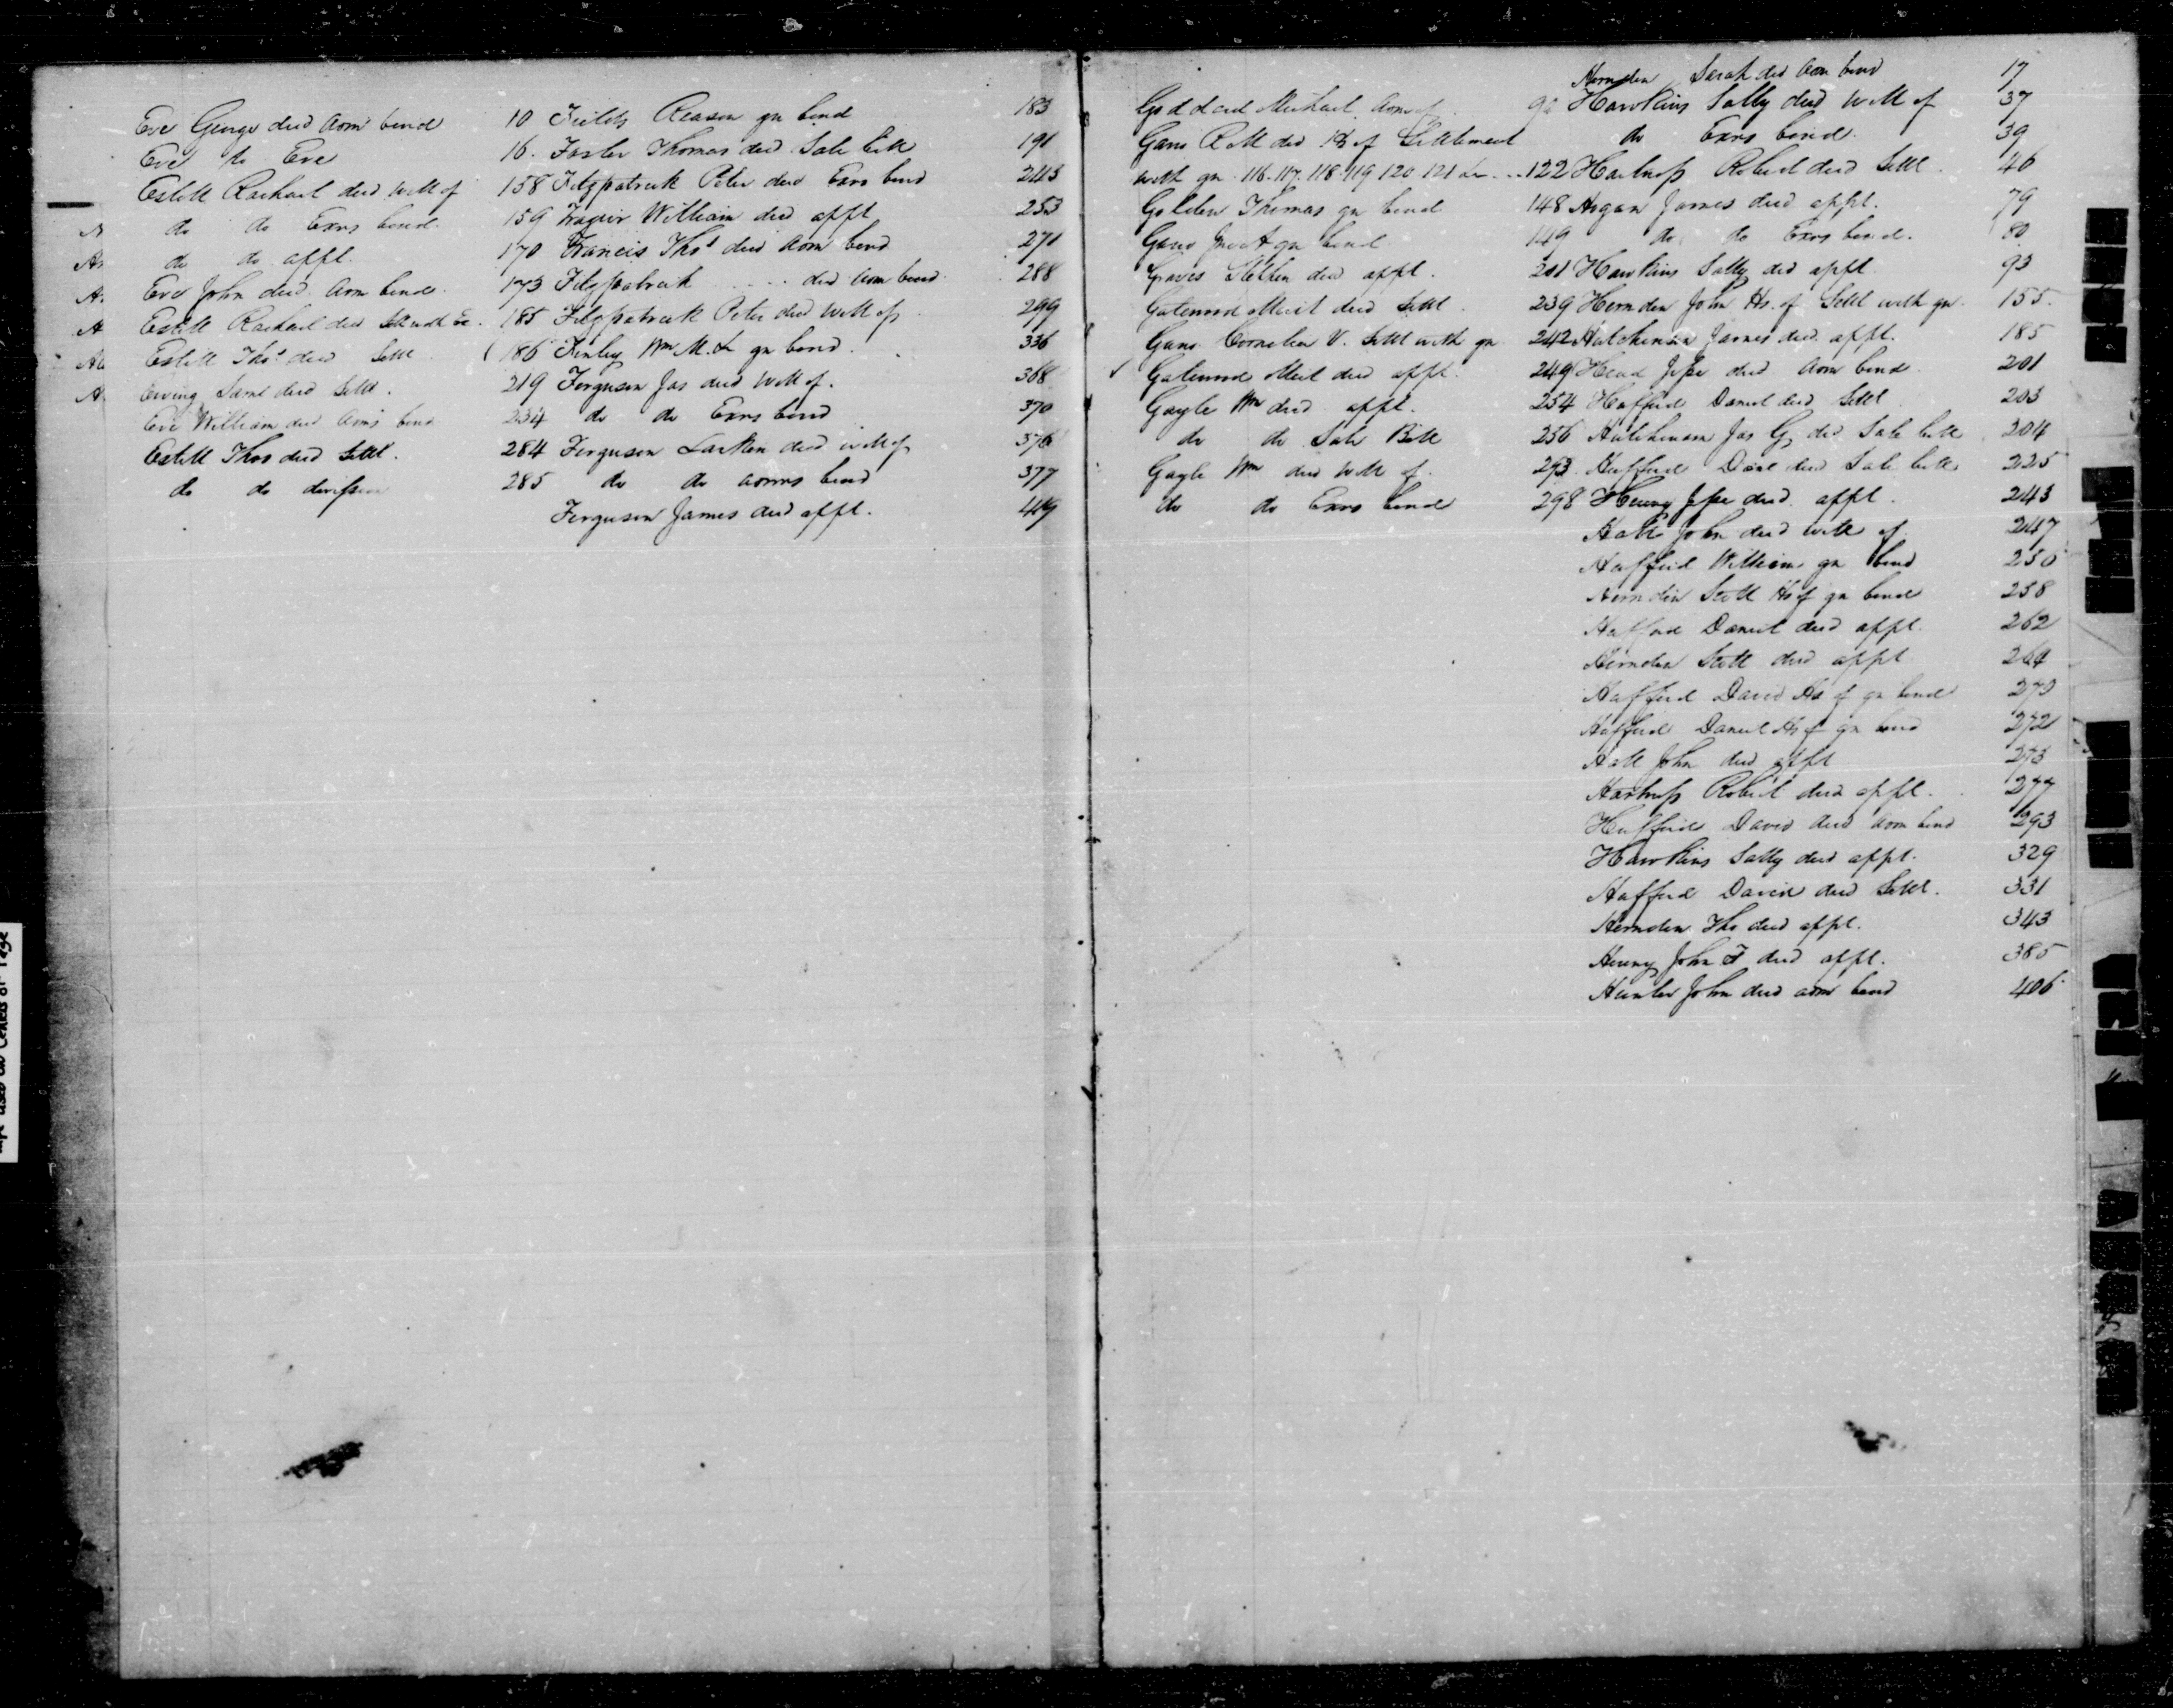 Eve George decd Adm bend 10
Eve to Eve 16.
Estill Rachael decd Will of 158
do do Exrs bend. 159
do do appt. 170
Eve John decd. Adm bend. 173
Estill Rachael decd Sett with Ex. 185
Estill Thos decd Settl 186
Ewing Saml decd Settl. 219
Eve William decd Adms bend 234
Estill Thos decd Settl. 284
do do division 285
Fields Reason gn bend 183
Foster Thomas decd Sale bill 191
Fitzpatrick Peter decd Exrs bend 243
Frazier William decd appt 253
Francis Thos decd Adm bend 271
Fitzpatrick ..... decd Adm bend. 288
Fitzpatrick Peter decd Will of 299
Finley Wm M. & gn bend. 336
Ferguson Jas decd Will of. 368
do do Exrs bend 370
Ferguson Larkin decd will of 376
do do admrs bend 377
Ferguson James decd appt. 419
Goddard Michael Adm of
Gano R M decd Hs of Settlement
with gn. 116. 117. 118. 119 120. 121 &c ... 122
Golden Thomas gn bend 148
Gano Jno A gn bend 149
Graves Stephen decd appt. 201
Gatewood Merit decd Settl. 239
Gano Cornelia V. Settl with gn 242
Gatewood Merit decd appt. 249
Gayle Wm decd. appt. 254
do do Sale Bill 256
Gayle Wm decd Will of. 293.
do do Exrs bend 298
Herndon Sarah decd Adm bend 17
Hawkins Sally decd Will of 37
do Exrs bend. 39
Robert decd Settl. 46
James decd appt. 79
do do Exrs bend. 80
Hawkins Sally decd appt. 93
Herndon John Hs. of Settl with gn. 155.
Hutchinson James decd. appt. 185
Head Jesse decd Adm bend. 201
Hufford Daniel decd Settl 203
Hutchinson Jas G, decd Sale bill 204
Hufford Danl decd Sale bill 225
Henry Jesse decd. appt. 243
Hall John decd will of. 247
Hufford William gn bend 250
Herndon Scott Hs of gn bend 258
Hufford Daniel decd appt. 262
Herndon Scott decd appt 264
Hufford David Hs of gn bend 270
Hufford Daniel Hs of gn bend 272
Hall John decd appt 273
Robert decd appt. 277
Hufford David decd Adm bend 293
Hawkins Sally decd appt. 329
Hufford David decd Settl. 331
Herndon Tho decd appt. 343
Henry John F decd appt. 385
Hunter John decd adm bend 406